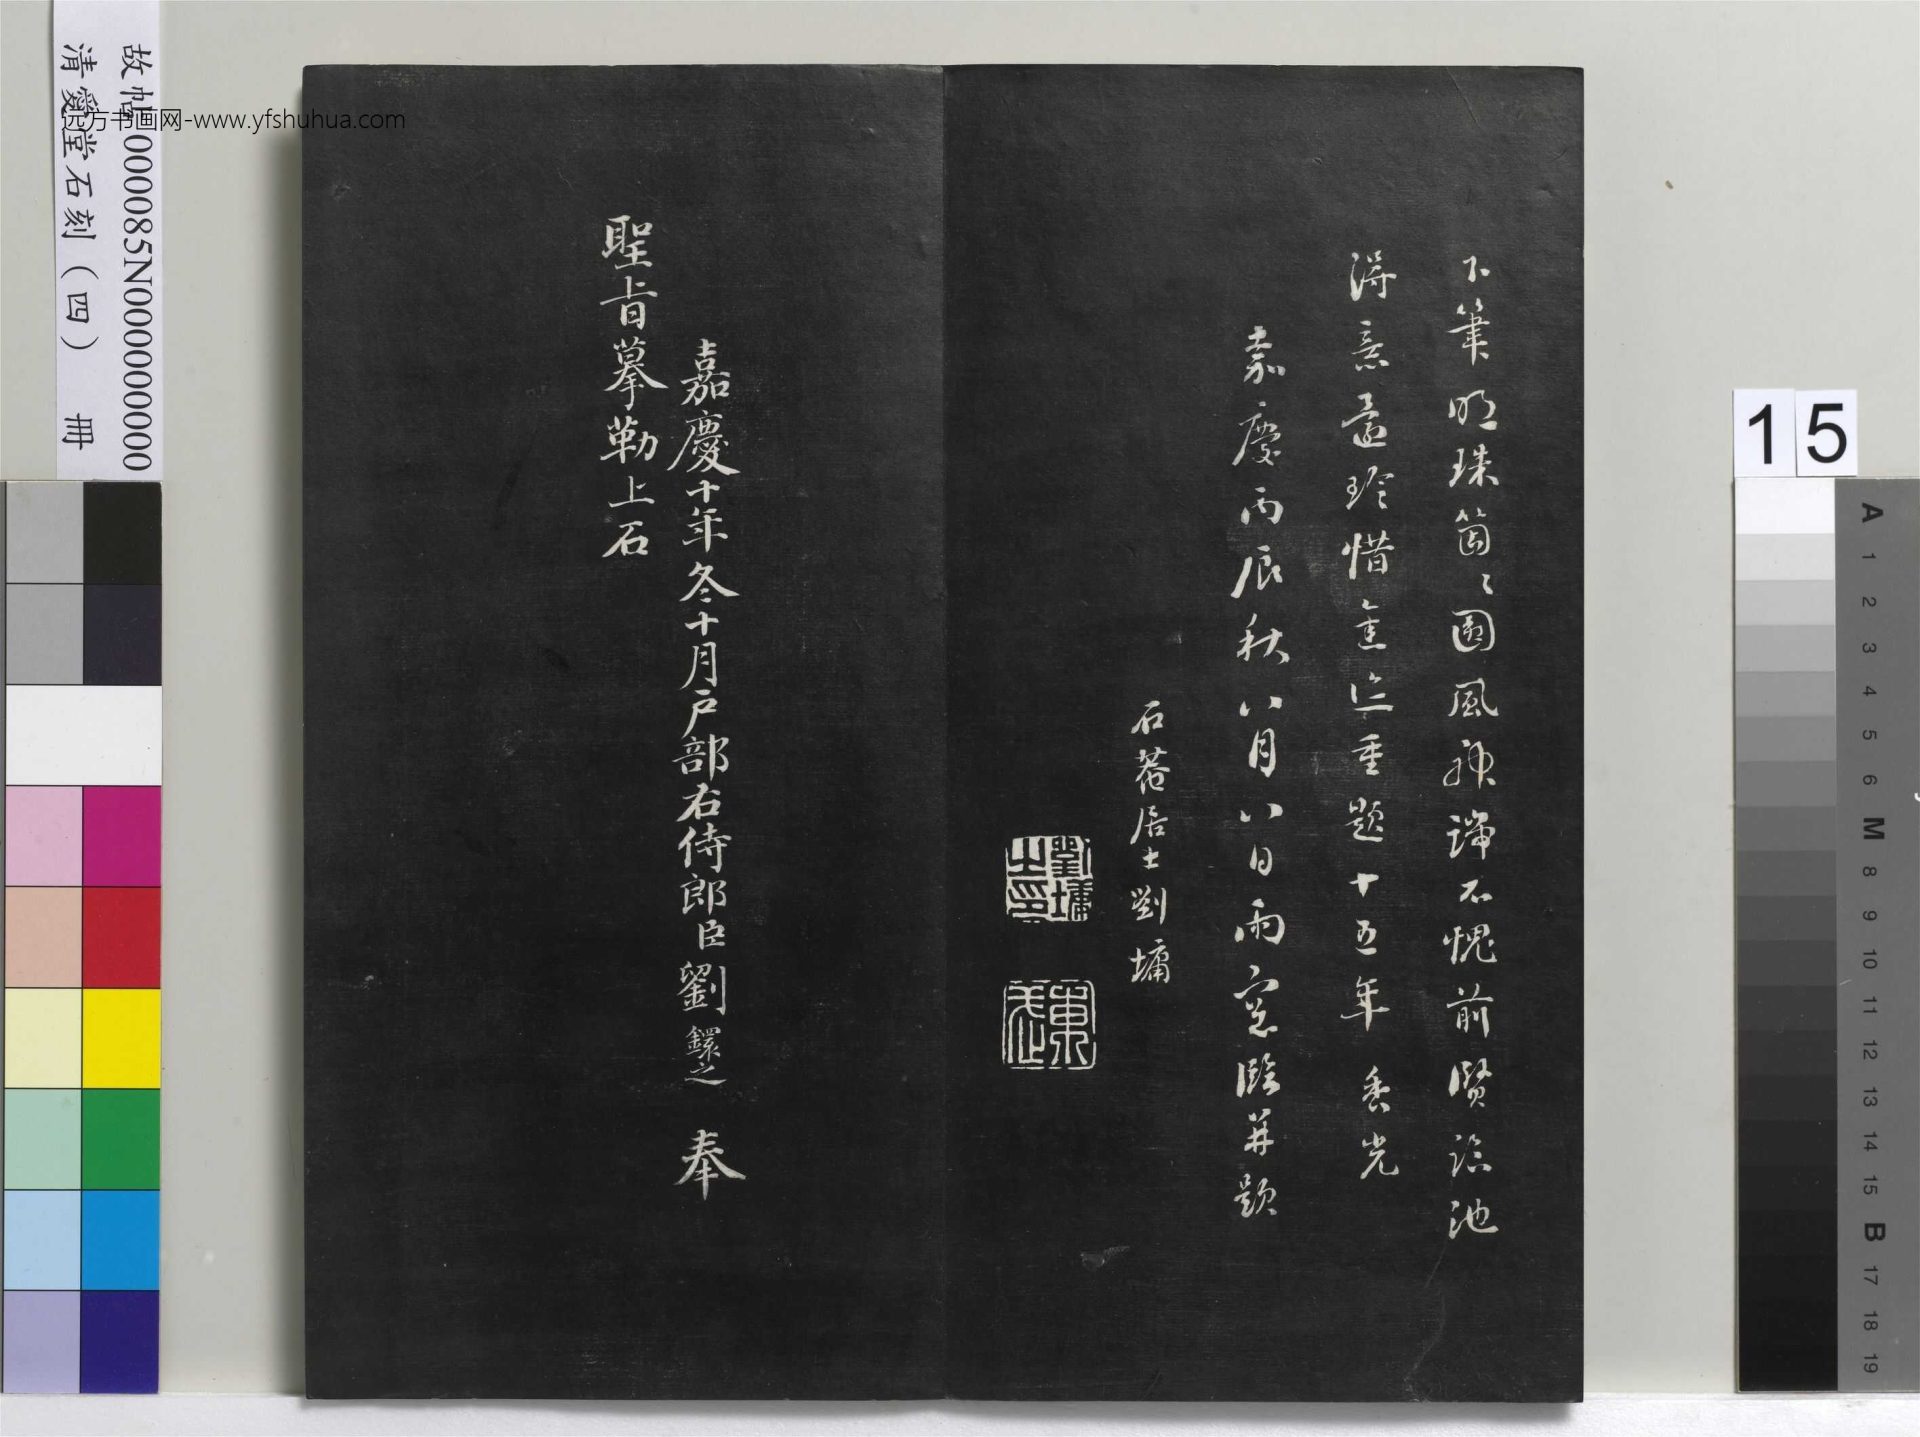 下筆明珠箇〻圓風神誰不愧前賢臨池
得意還珍惜重迹重題十五年 香光
嘉慶丙辰秋八月八日雨窓臨并題
石菴居士劉墉
劉墉之印
東武
嘉慶十年冬十月户部右侍郎臣劉鐶之 奉
聖旨摹勒上石
故帖000085N000000000
清愛堂石刻(四) 冊
远方书画网-www.yfshuhua.com
15
A
1
2
3
4
5
6
M
8
9
10
11
12
13
14
15
B
17
18
19